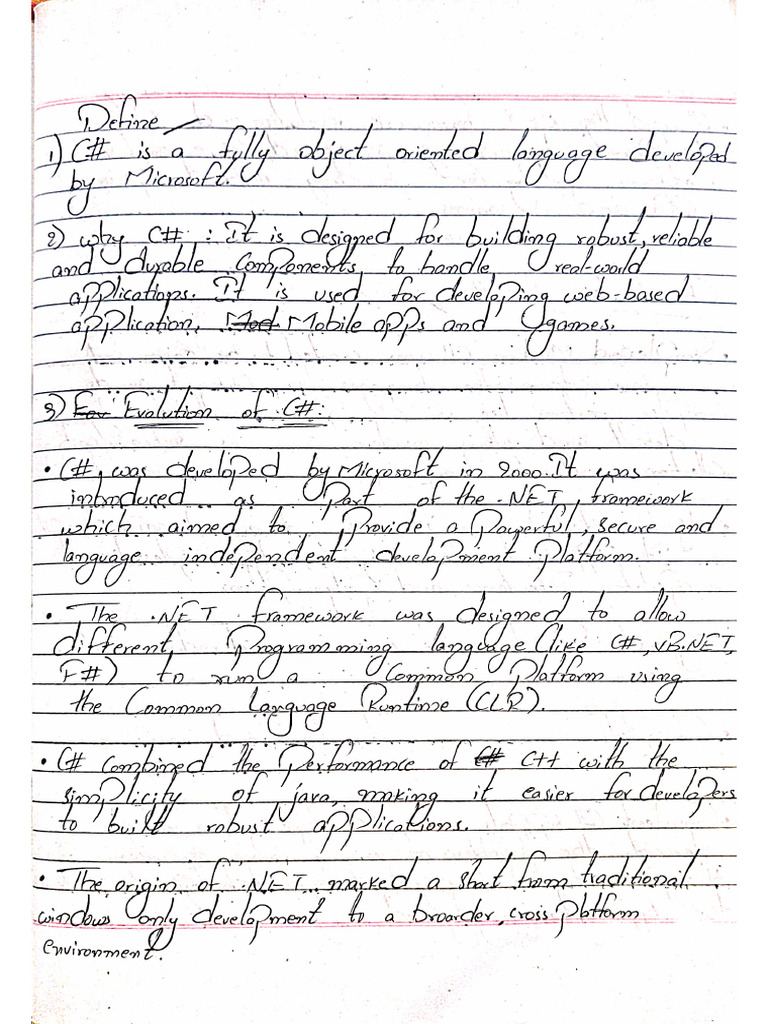 Define
1) C# is a fully object oriented language developed
by Microsoft.
2) why C# : It is designed for building robust, reliable
and durable components, to handle real-world
applications. It is used for developing web-based
application, Mod Mobile apps and games.
3) For Evolution of C#:
• C#, was developed by Microsoft in 2000. It was
introduced as part of the .NET, framework
which aimed to provide a powerful, secure and
language independent development platform.
• The .NET framework was designed to allow
different, programming language (like C#, VB.NET,
F#) to run a common platform using
the Common Language Runtime (CLR).
• C# combined the performance of C# C++ with the
simplicity of java, making it easier for developers
to built robust applications.
• The origin of .NET marked a short from traditional
windows only development to a broarder, cross platform
environment.